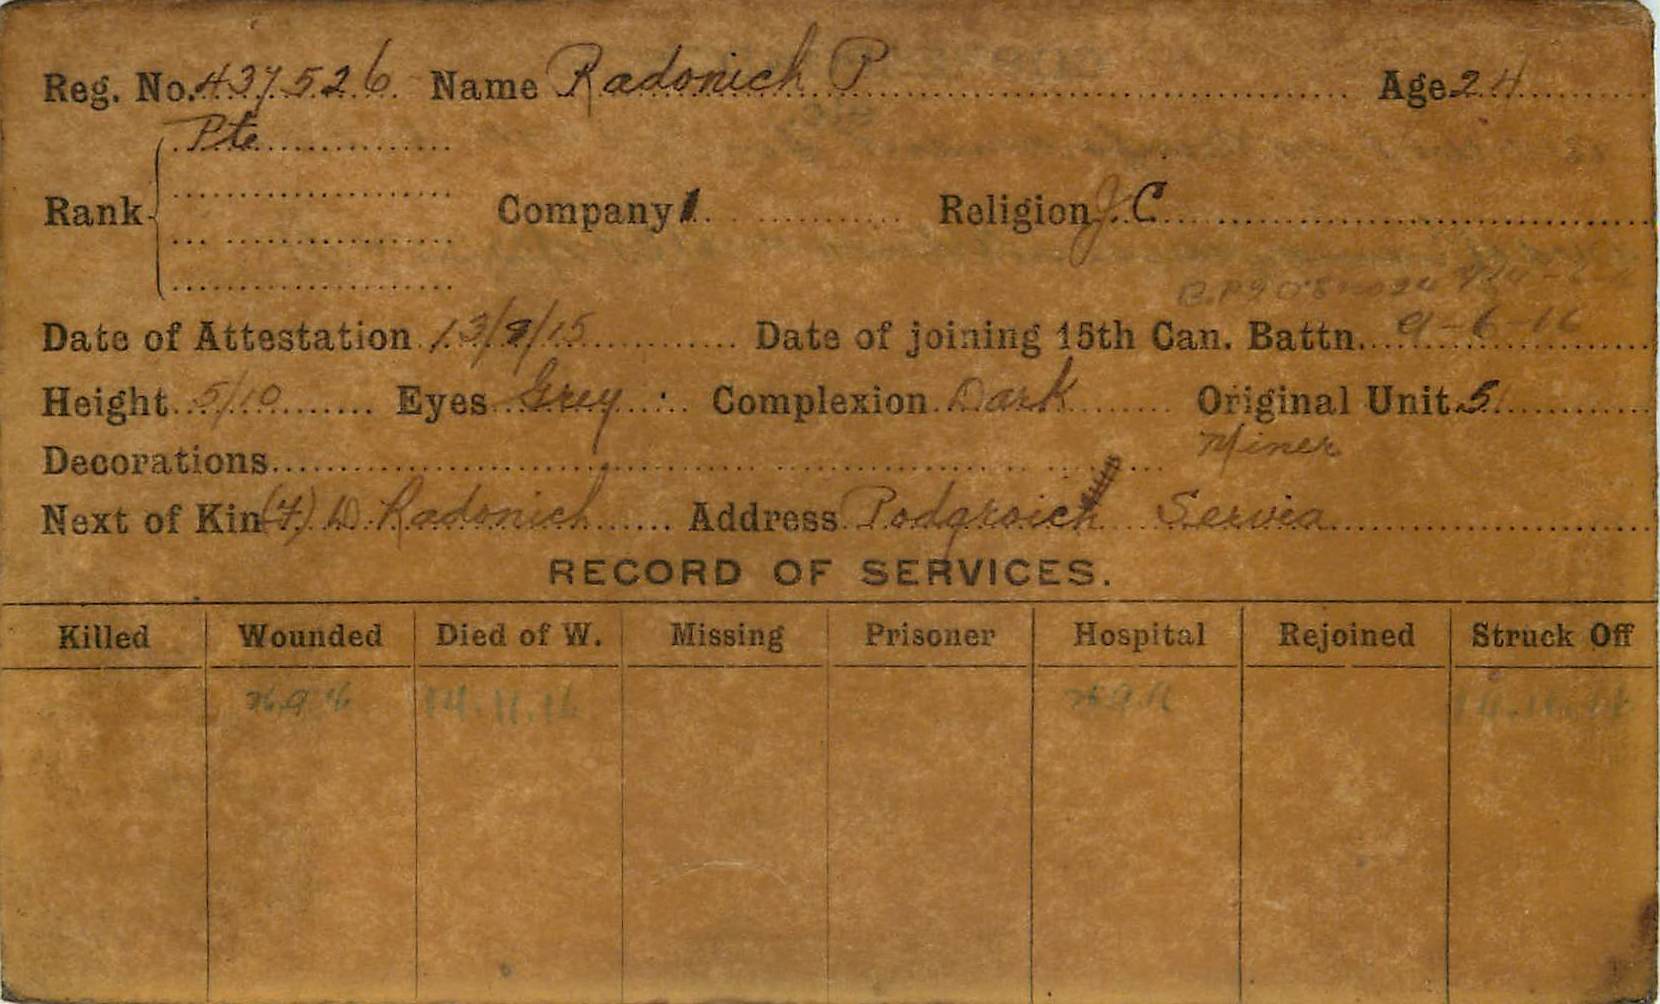 Reg. No. 437526 Name Radonich P Age 24
Pte
Rank Company 1 Religion C
Date of Attestation 13/9/15 Date of joining 15th Can. Battn. 9-6-16
Height 5/10 Eyes Grey Complexion Dark Original Unit 51
Decorations Miner
Next of Kin (f) D. Radonich Address Podgroich Servia
RECORD OF SERVICES.
Killed Wounded Died of W. Missing Prisoner Hospital Rejoined Struck Off
14.11.16